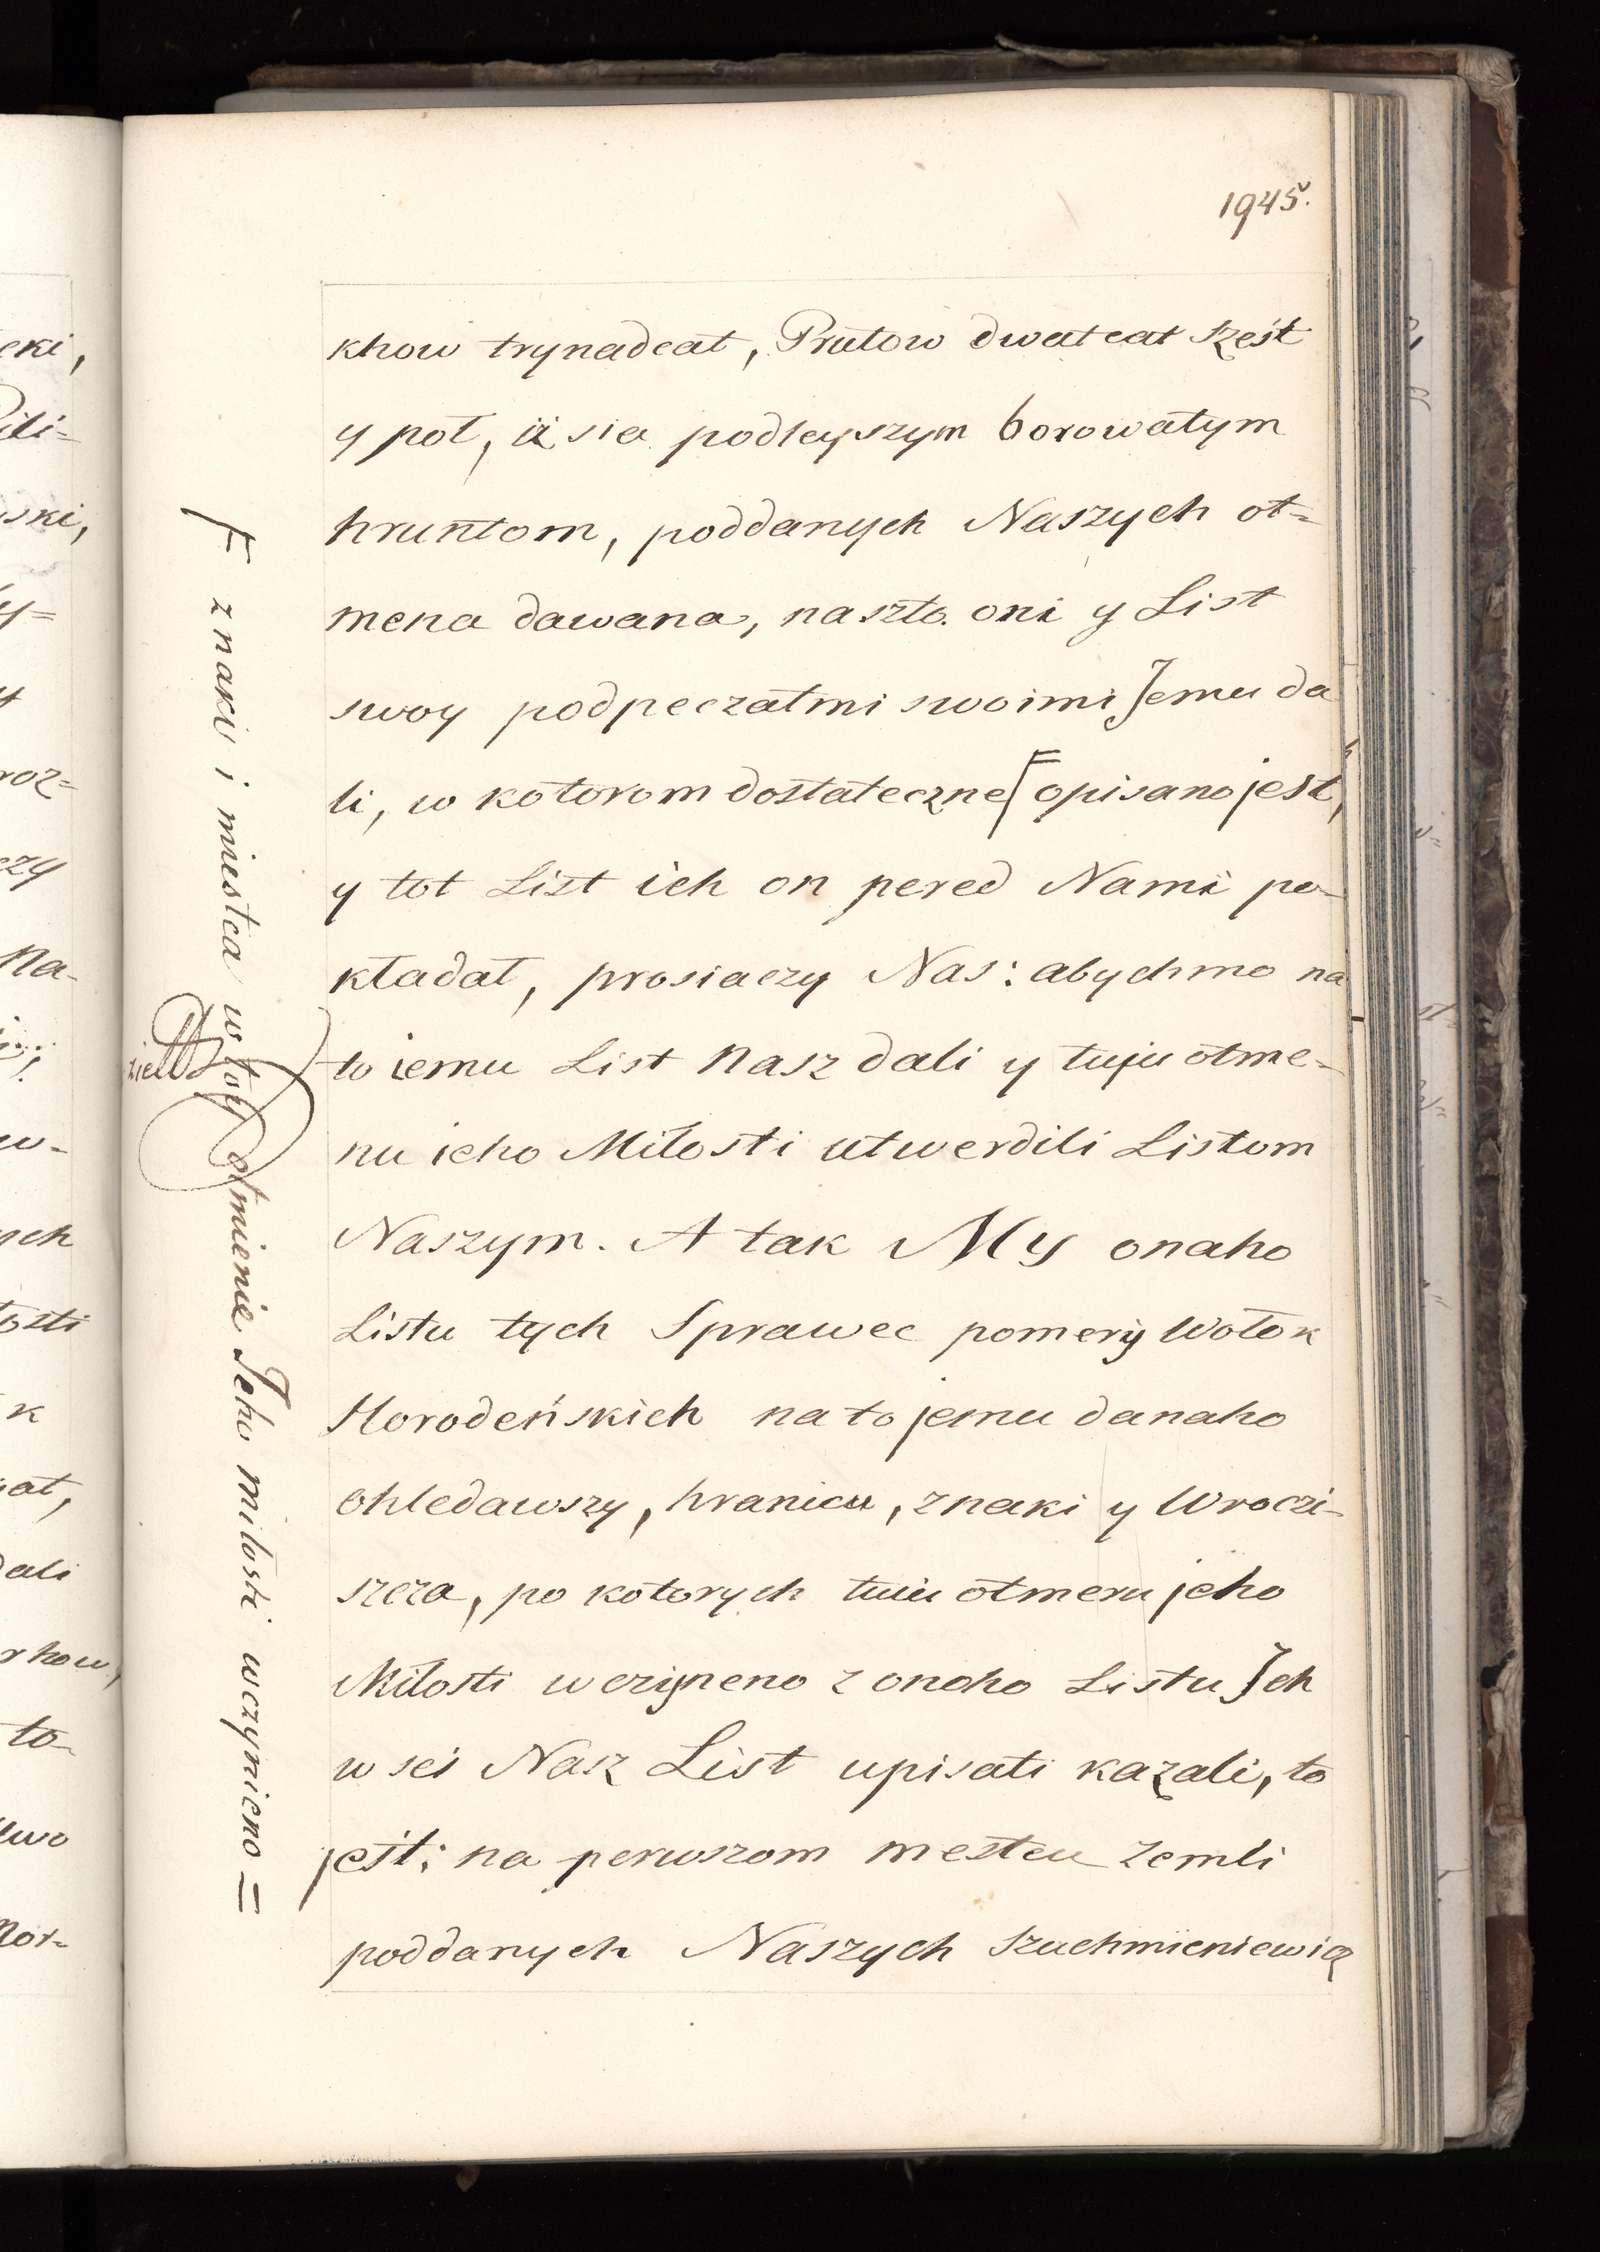 1945.
khow trynadcat, Prutow dwatcat sześt
y poł, iż sia podleyszym borowatym
hruntom, poddanych Naszych ot=
mena dawana, naszto oni y List
swoy podpeczatmi swoimi Jemu da
li, w kotorom dostateczne F opisano jest,
y tot List ich on pered Nami po-
kładał, prosiaczy Nas: abychmo na
to iemu List Nasz dali y tuju otme-
nu ieho Miłosti utwerdili Listom
Naszym. A tak My onaho
Listu tych Sprawec pomery Wołok
Horodeńskich na to jemu danaho
Ohledawszy, hranicu, znaki y Wroczi-
szcza, po kotorych tuiu otmenu jeho
Miłosti wczyneno z onoho Listu Jch
w seś Nasz List upisati kazali, to
jest: na perwszom mestcu zemli
poddanych Naszych Szuchmieniewicz
F znaki i miestca w toy otmienie Jeho miłosti uczynieno =
eki,
ski,
roz=
czy
Na-
w-
ych
k
dali
to-